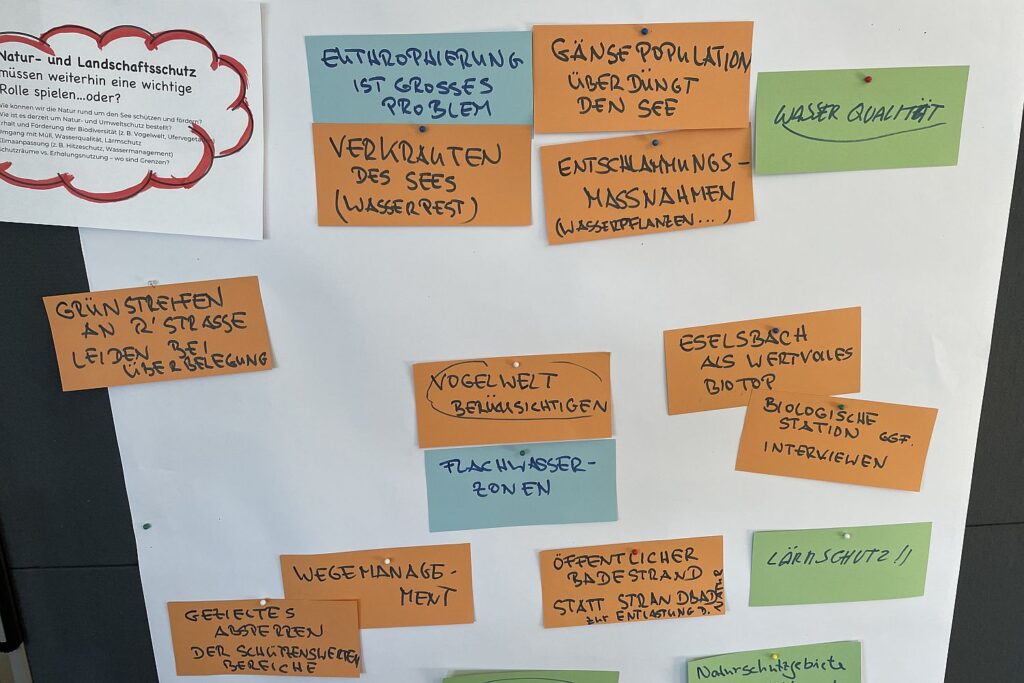 Natur- und Landschaftsschutz
müssen weiterhin eine wichtige
Rolle spielen...oder?
Wie können wir die Natur rund um den See schützen und fördern?
Wie ist es derzeit um Natur- und Umweltschutz bestellt?
Erhalt und Förderung der Biodiversität (z. B. Vogelwelt, Ufervegetat
Umgang mit Müll, Wasserqualität, Lärmschutz
Klimaanpassung (z. B. Hitzeschutz, Wassermanagement)
Schutzräume vs. Erholungsnutzung – wo sind Grenzen?
EUTHROPHIERUNG
IST GROSSES
PROBLEM
GÄNSEPOPULATION
ÜBERDÜNGT
DEN SEE
WASSER QUALITÄT
VERKRAUTEN
DES SEES
(WASSERPEST)
ENTSCHLAMMUNGS-
MASSNAHMEN
(WASSERPFLANZEN...)
GRÜNSTREIFEN
AN R'STRASSE
LEIDEN BEI
ÜBERBELEGUNG
VOGELWELT
BERÜCKSICHTIGEN
FLACHWASSER-
ZONEN
ESELSBACH
ALS WERTVOLLES
BIOTOP
BIOLOGISCHE
STATION GGF.
INTERVIEWEN
WEGEMANAGE-
MENT
GEZIELTES
ABSPERREN
DER SCHÜTZENSWERTEN
BEREICHE
ÖFFENTLICHER
BADESTRAND
STATT STRANDBAD
ZUR ENTLASTUNG D. NATUR
LÄRMSCHUTZ!!
Naturschutzgebiete